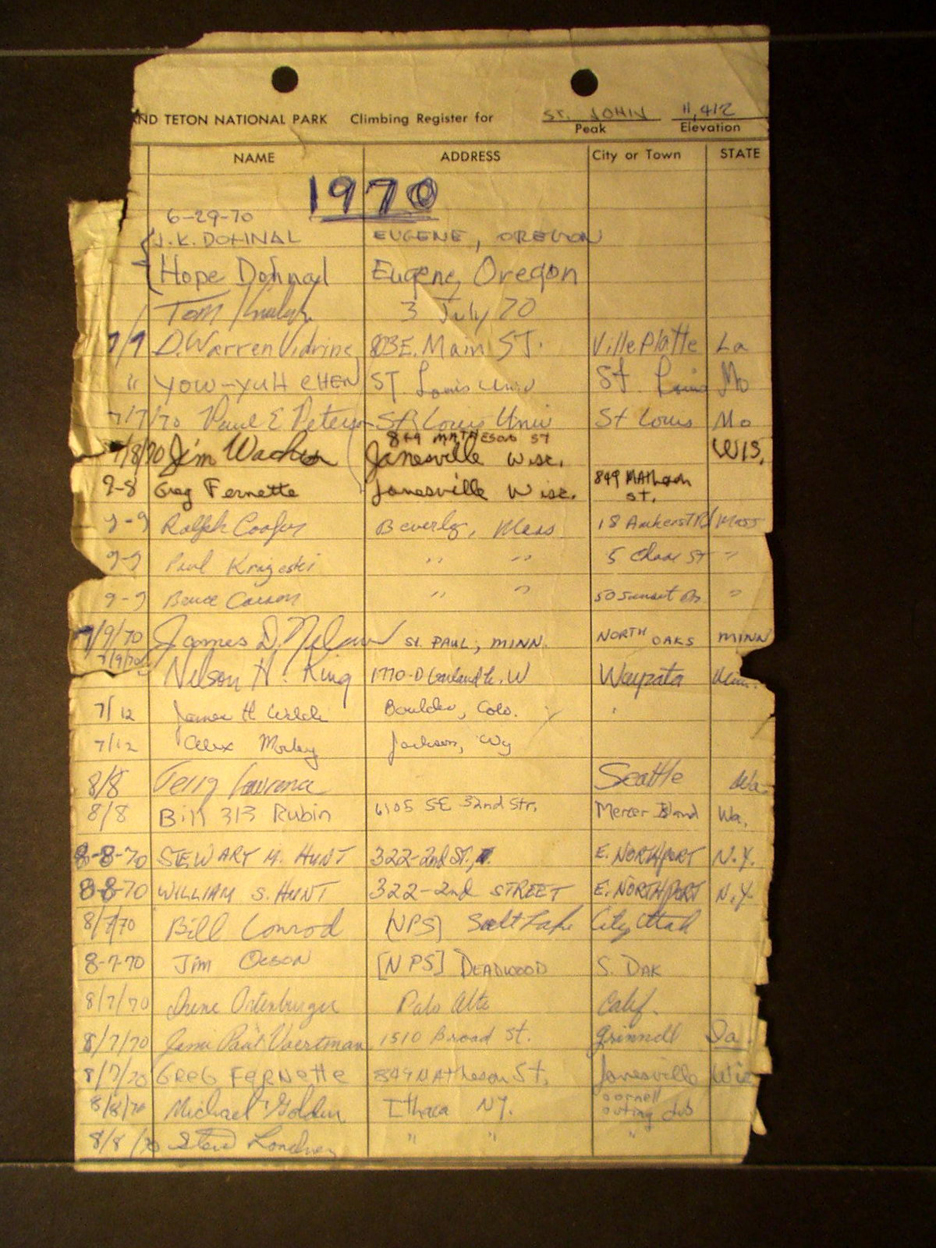 ND TETON NATIONAL PARK Climbing Register for ST. JOHN 11,412
Peak Elevation
NAME ADDRESS City or Town STATE
1970
6-29-70
J.K. DOHNAL EUGENE, OREGON
Hope Dohnal Eugene, Oregon
Tom 3 July 70
7/7 D. Warren Vidrine E. Main ST. Ville Platte La
" YOW-YUH CHEN ST Louis Univ St. Louis Mo
7/7/70 Paul E Peterson St Louis Univ St Louis Mo
849 MATHESON ST
7/8/70 Jim Janesville Wisc. WIS.
9-8 Greg Fernette Janesville Wisc. 849 Matheson
st.
9-9 Ralph Beverly, Mass 18 Amherst Rd Mass
9-9 Paul " " 5 St "
9-9 Bruce Carson " " 50 Sunset Dr "
7/9/70 James D. Nelson St. PAUL, MINN. NORTH OAKS MINN
7/9/70 Nelson H. King 1770-D W Wayzata Minn.
7/12 James H Welch Boulder, Colo.
7/12 Alex Morley Jackson, Wy
8/8 Terry Seattle Wa
8/8 Bill 313 Rubin 6105 SE 32nd Str. Mercer Island Wa.
8-8-70 STEWART M. HUNT 322-2nd St., E. NORTHPORT N.Y.
8-8-70 WILLIAM S. HUNT 322-2nd STREET E. NORTHPORT N.Y.
8/7/70 Bill Conrod [NPS] Salt Lake City Utah
8-7-70 Jim Olson [NPS] DEADWOOD S. DAK
8/7/70 Irene Ortenburger Palo Alto Calif.
8/7/70 Jamie Paul Voertman 1510 Broad St. Grinnell Ia.
8/7/70 GREG FERNETTE 849 Matheson St. Janesville Wis
8/8/70 Michael Golden Ithaca NY. cornell
outing club
8/8/70 Steve " " "